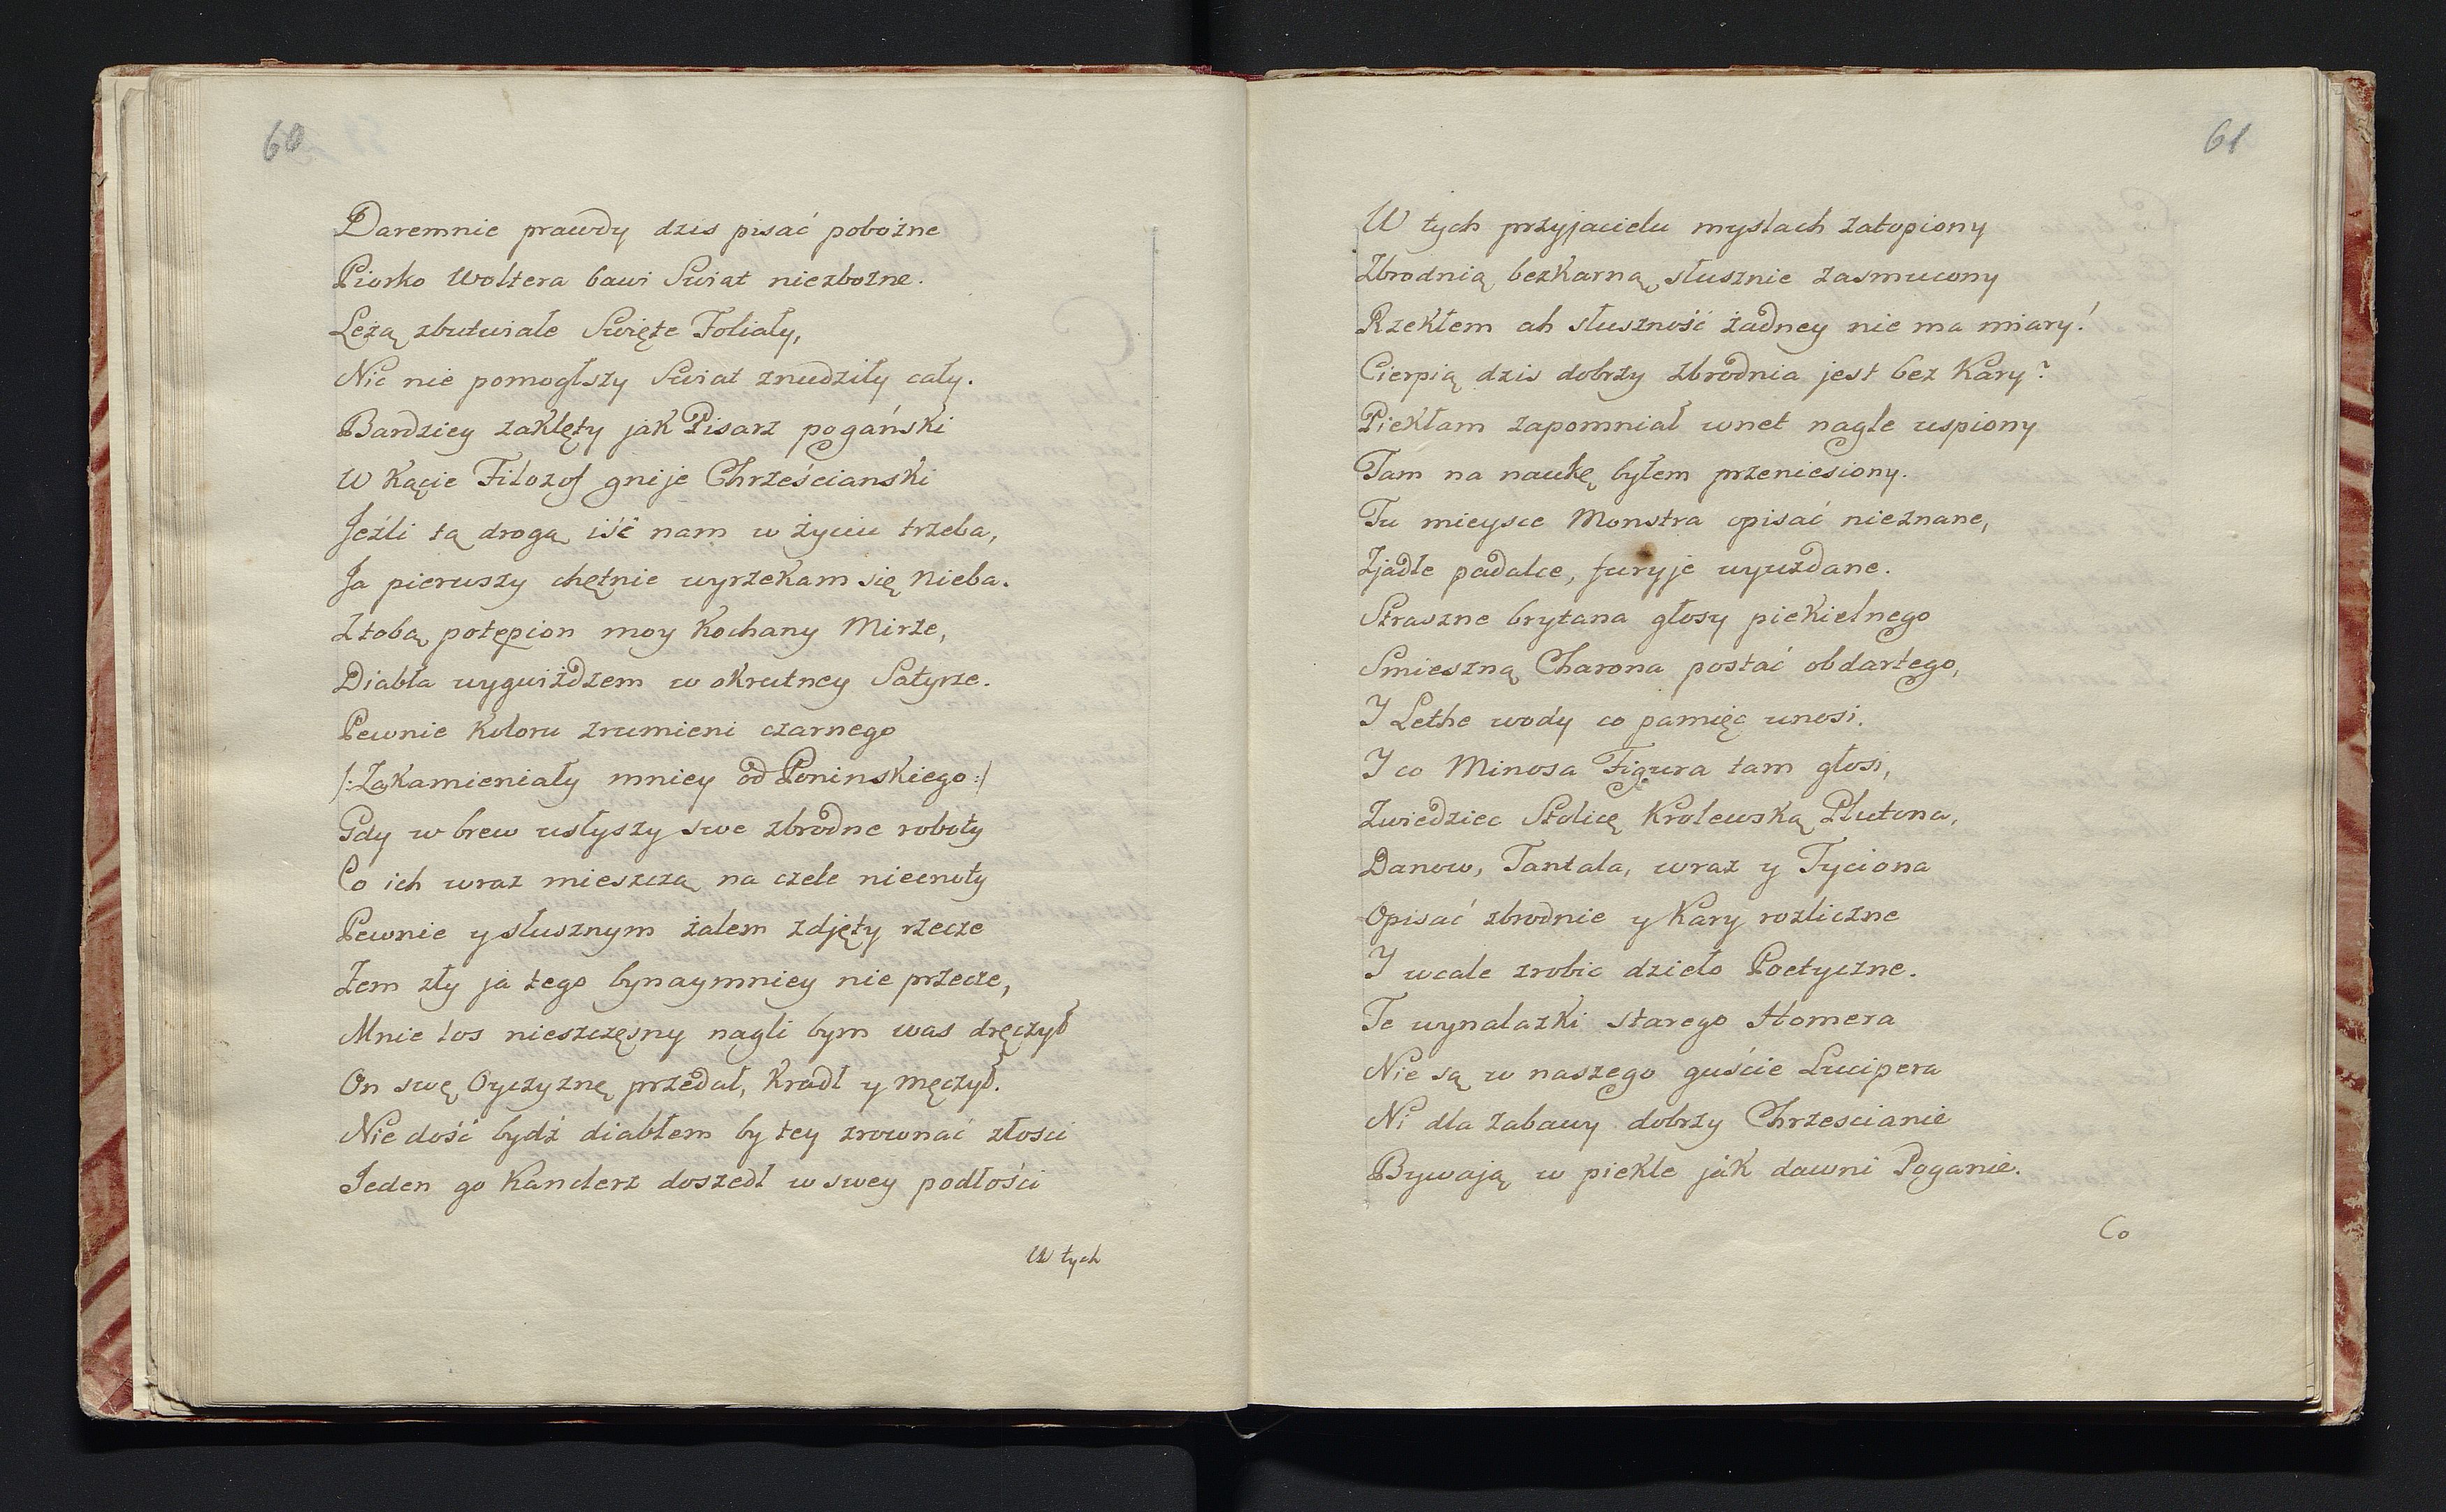 60
Daremnie prawdy dzis pisać pobożne
Piorko Woltera bawi Swiat niezbożne.
Leżą zbutwiałe Swięte Foliały,
Nic nie pomogłszy Swiat znudziły cały.
Bardziey zaklęty jak Pisarz pogański
W Kącie Filozof gnije Chrześcianski
Jeźli tą drogą iść nam w życiu trzeba,
Ja pierwszy chętnie wyrzekam się Nieba.
Z tobą potępion moy Kochany Mirze,
Diabła wygwiżdżem w okrutney Satyrze.
Pewnie Koloru zrumieni czarnego
/:Zakamieniały mniey od Poninskiego:/
Gdy w brew usłyszy swe zbrodne roboty
Co ich wraz mieszczą na czele niecnoty
Pewnie y słusznym żalem zdjęty rzecze
Żem zły ja tego bynaymniey nie przecze,
Mnie los nieszczęsny nagli bym was dręczył
On swę Oyczyznę przedał, Kradł y męczył.
Nie dość bydź diabłem by tey zrownać złości
Jeden go Kanclerz doszedł w swey podłości
W tych
61
W tych przyjacielu myslach zatopiony
Zbrodnią bezkarną słusznie zasmucony
Rzekłem ah słuszność żadney nie ma miary!
Cierpią dzis dobrzy zbrodnia jest bez Kary?
Piekłam zapomniał wnet nagle uspiony
Tam na naukę byłem przeniesiony.
Tu mieysce Monstra opisać nieznane,
Zjadłe padalce, furyje wyuzdane.
Straszne brytana głosy piekielnego
Smieszną Charona postać obdartego,
I Lethe wody co pamięc unosi.
I co Minosa Figura tam głosi,
Zwiedziec Stolicę Krolewską Plutona,
Danow, Tantala, wraz y Tyciona
Opisać zbrodnie y Kary rozliczne
I wcale zrobic dzieło Poetyczne.
Te wynalazki starego Homera
Nie są w naszego guście Lucipera
Ni dla zabawy dobrzy Chrzescianie
Bywają w piekle jak dawni Poganie.
Co